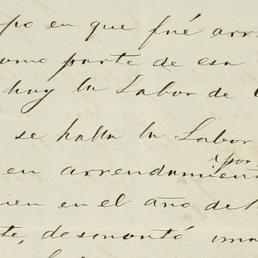 po en que fué arr
como parte de esa
hay la Labor de
se halla la Labor
por
en arrendamien
ien en el año de
te, desmontó una